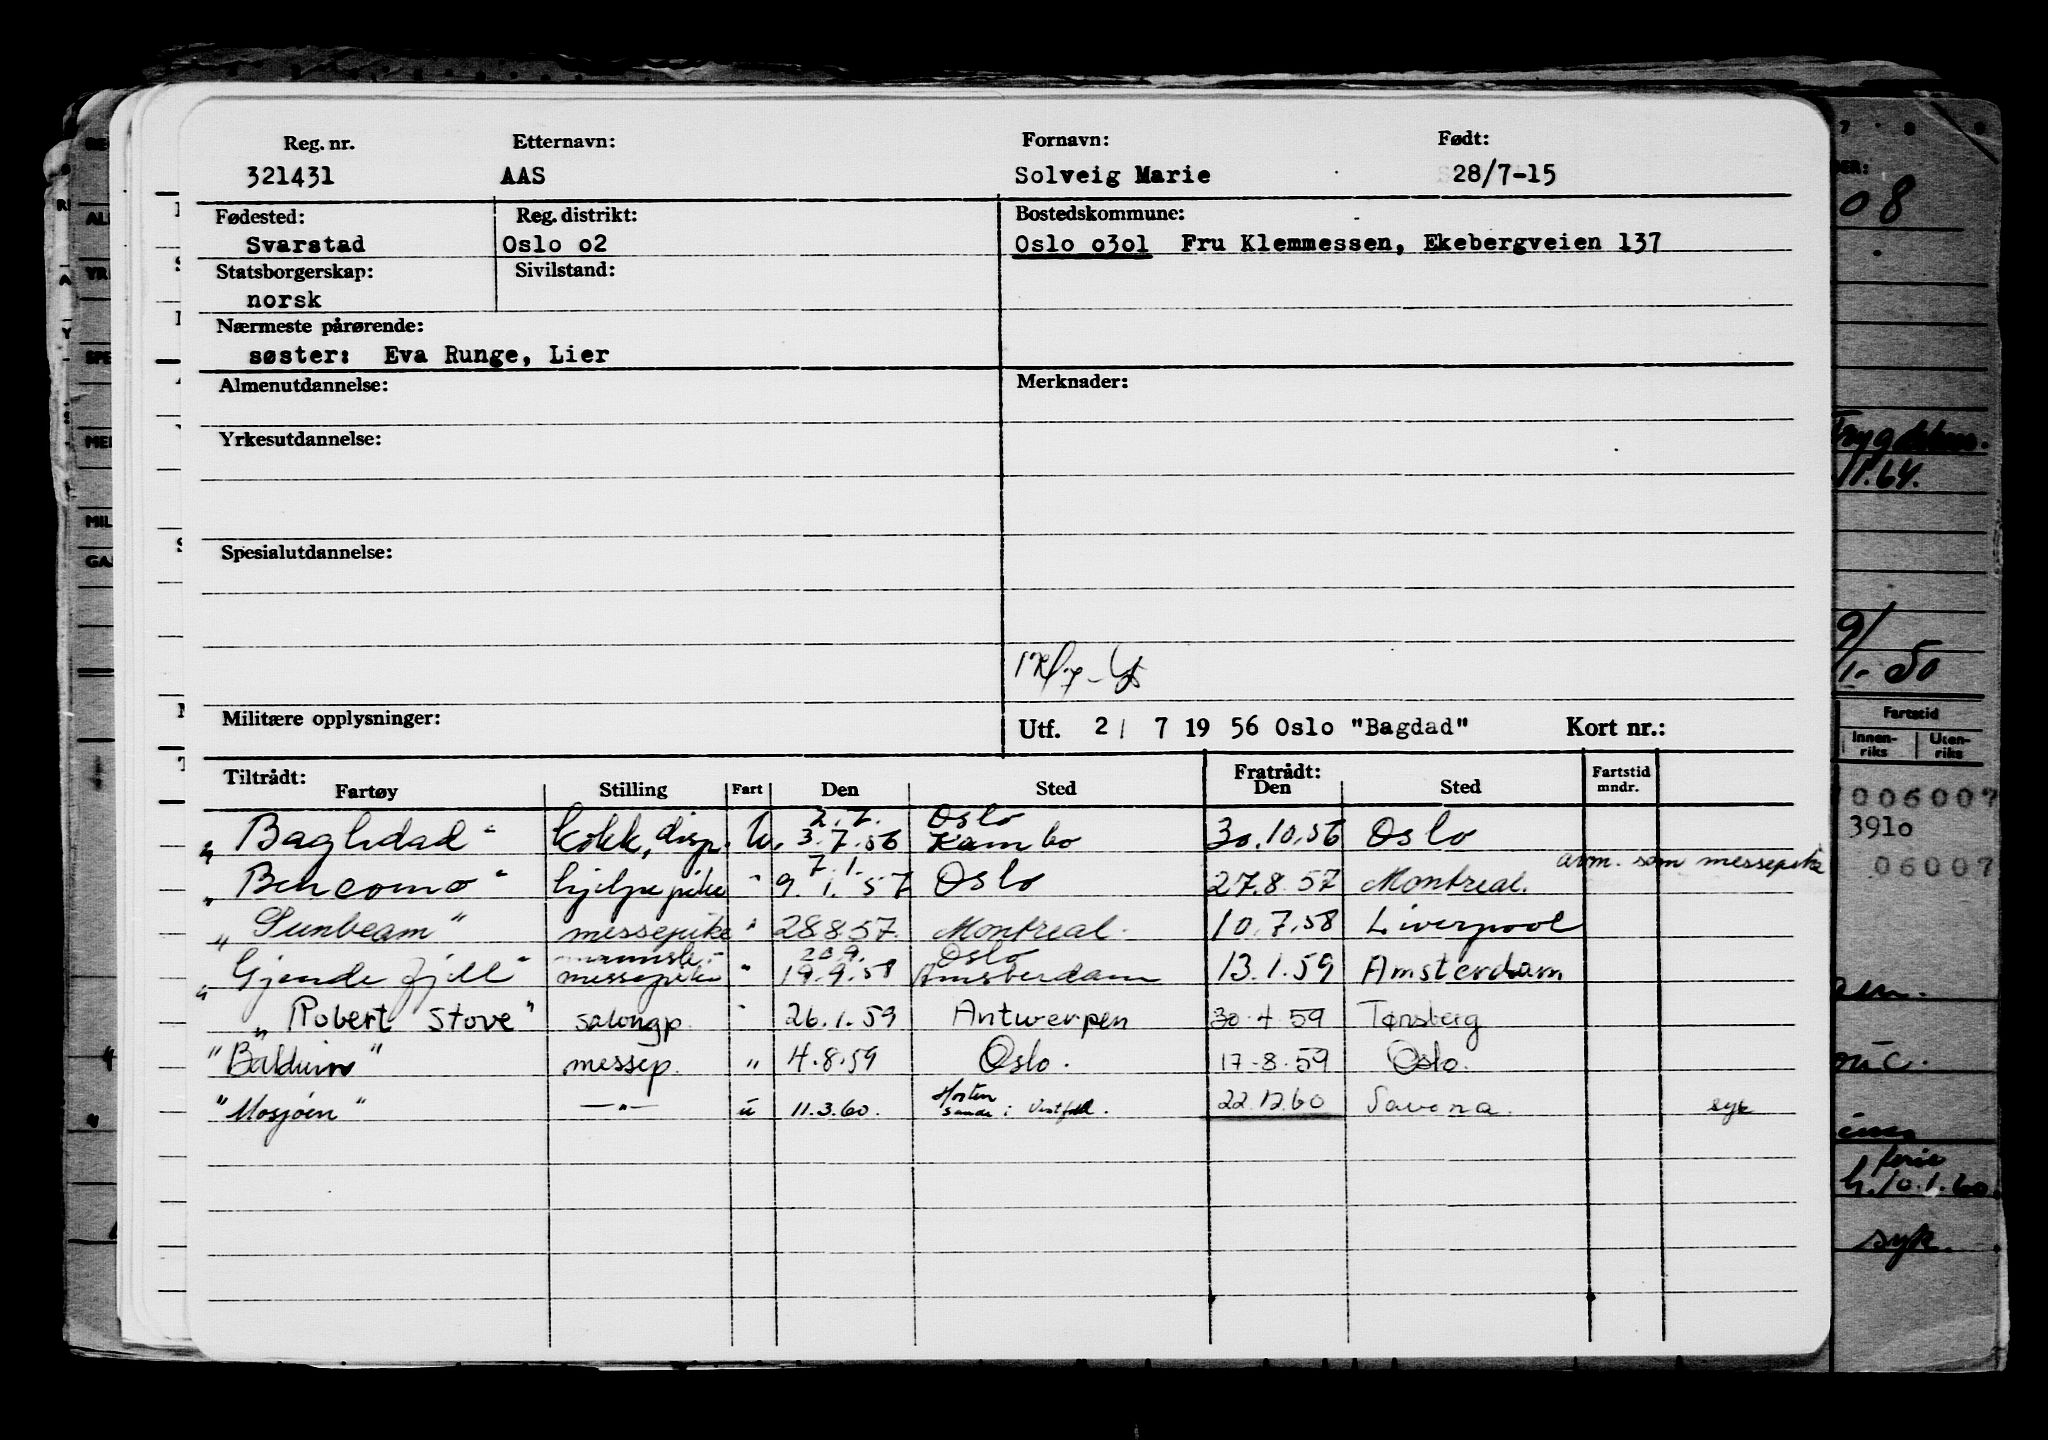 Reg. nr. Etternavn: Fornavn: Født:
321431 AAS Solveig Marie 28/7-15
Fødested: Reg. distrikt: Bostedskommune:
Svarstad Oslo o2 Oslo o3o1 Fru Klemmessen, Ekebergveien 137
Statsborgerskap: Sivilstand:
norsk
Nærmeste pårørende:
søster: Eva Runge, Lier
Almenutdannelse: Merknader:
Yrkesutdannelse:
Spesialutdannelse:
Militære opplysninger: Utf. 2/ 7 19 56 Oslo "Bagdad" Kort nr.:
Tiltrådt: Fratrådt:
Fartøy Stilling Fart Den Sted Den Sted Fartstid mndr.
2.7. Oslo
"Baghdad" kokk, disp. u. 3.7.56 Kambo 30.10.56 Oslo
7.1. avm. som messepike
"Bencomo" hjelpepike " 9.1.57 Oslo 27.8.57 Montreal.
"Sunbeam" messepike " 28.8.57. Montreal. 10.7.58 Liverpool
20.9. Oslo
"Gjendefjell" messepike " 19.9.58 Amsterdam 13.1.59 Amsterdam
"Robert Stove" salongp. " 26.1.59 Antwerpen 30.4.59 Tønsberg
"Balduin" messep. " 4.8.59 Oslo. 17-8.59 Oslo.
"Mosjøen" —"— u 11.3.60. Horten Sande i Vestfold. 22.12.60 Savona. syk
08
1.64.
9/
1.-50
Fartstid
Innen-riks Uten-riks
006007
3910
06007
ferie
h.10.1.60.
syk.